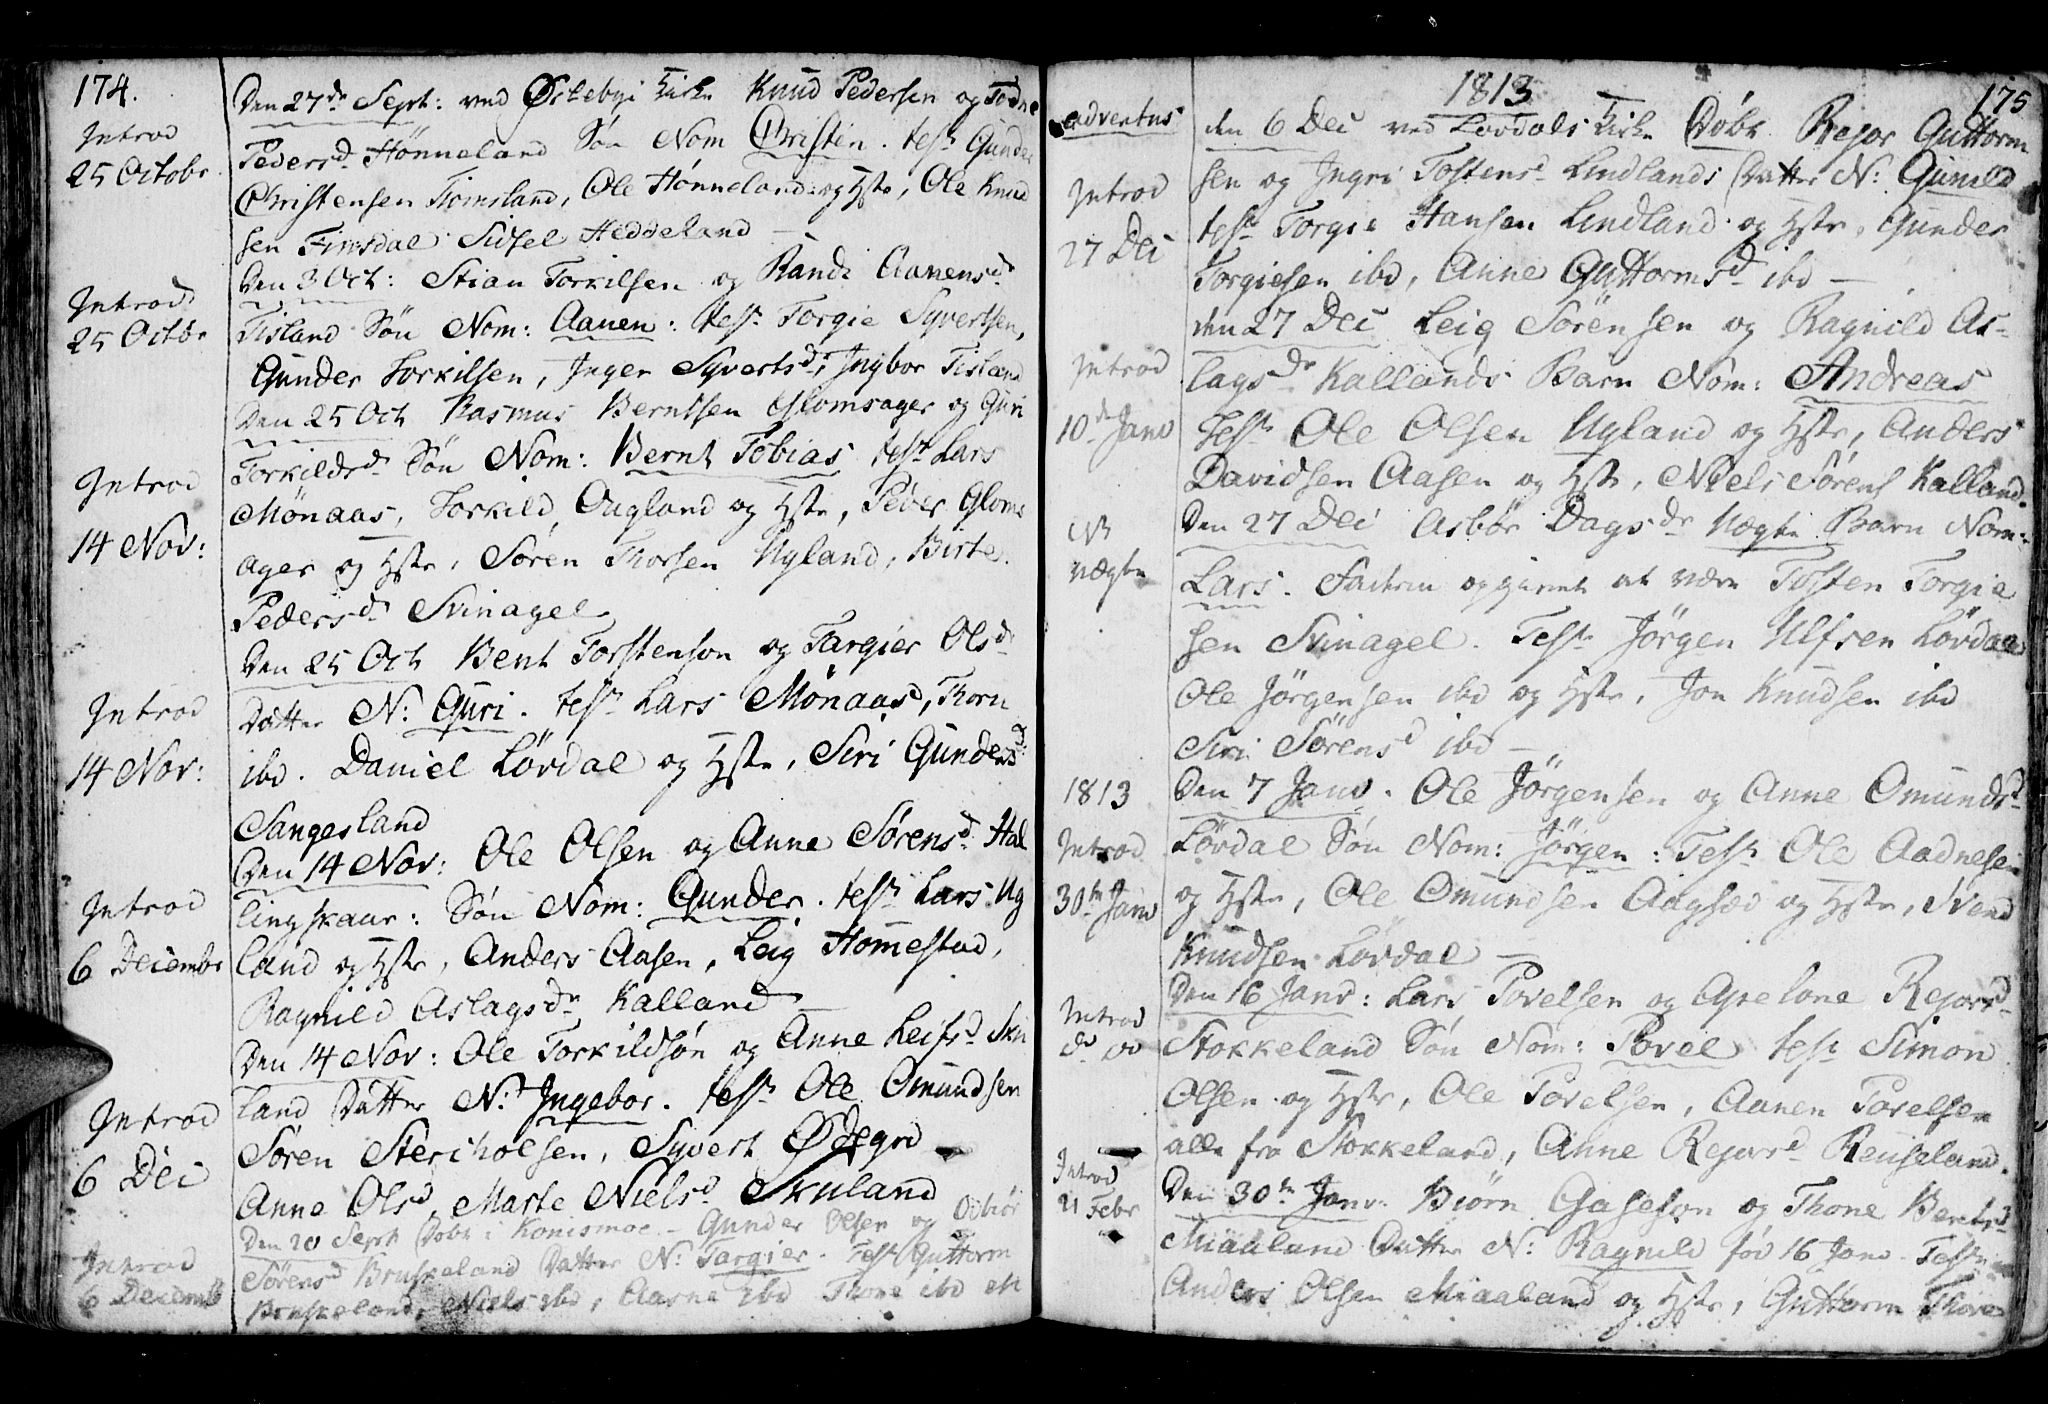 174.
Introd
25 Octobr
Den 27de Sept: ved Østebyi Kirke Knud Pedersen og Todne
Pedersd Hönneland Sön Nom Christen. test Gunder
Christensen Tiomsland, Ole Hönneland og Hstr, Ole Knud
sen Finsdal Sidsel Heddeland —
Introd
25 Octbr
Den 3 Oct: Stian Torkilsen og Randi Aanensdr
Tisland Sön Nom: Aanen: test Torgie Syvertsen,
Gunder Torkilsen, Inger Syvertsd, Ingbor Tisland
Introd
14 Nov:
Den 25 Oct Rasmus Berntsen Glomsager og Guri
Torkildsd Sön Nom: Bernt Tobias test Lars
Mönaas, Torkild Ougland og Hstr, Peder Gloms
ager og Hstr, Sören Thorsen Uyland, Birte
Pedersd Svinagel
Introd
14 Nov:
Den 25 Oct Bent Torstenson og Targier Olsdr
Datter N: Guri. test Lars Mönaas, Thorn
ibd. Daniel Lövdal og Hstr, Siri Gundersd
Sangesland
Introd
6 Decembr
Den 14 Nov: Ole Olsen og Anne Sörensd Hal
lingskaar: Sön Nom: Gunder. test Lars Ug
land og Hstr, Anders Aasen, Leig Homestad,
Ragnild Aslagsdr Kalland —
Introd
6 Dec
Den 14 Nov: Ole Torkildsön og Anne Leifsd Sku
land Datter N: Ingebor. test Ole Omundsen
Sören Sterckolsen, Syvert Ödegrd
Anne Olsd, Marte Nielsd Skuland
Introd
6 Decembr
Den 20 Sept Döbt i Konismoe — Gunder Olsen og Osbiör
Sörensd Bruskeland Datter N: Targier. Test Guttorm
Bruskeland, Niels ibd, Aasne ibd Thone ibd
1813
175
adventus
Introd
27 Dec
den 6 Dec ved Lövdals Kirke Döbt Rejor Guttorm
sen og Ingri Tostensd Lindlands Datter N: Gunild
test Torgie Hansen Lindland og Hstr, Gunder
Torgiesen ibd, Anne Guttormsd ibd —
Introd
10de Janv
den 27 Dec Leig Sörensen og Ragnild As-
lagsdr Kallands Barn Nom: Andreas
Test Ole Olsen Uyland og Hstr, Anders
Davidsen Aasen og Hstr, Niels Sörens Kalland.
NB
uægte
Den 27 Dec Asbör Dagsdr Uægte Barn Nom:
Lars. Fadren opgivet at være Tosten Torgie
sen Svinagel. Test Jörgen Ulfsen Lövdal
Ole Jörgensen ibd og Hstr, Jon Knudsen ibd
Siri Sörensd ibd —
1813
Introd
30te Janv
Den 7 Janv. Ole Jörgensen og Anne Omundsd
Lövdal Sön Nom: Jörgen: Test Ole Aadnesen
og Hstr, Ole Omundsen Aagsæd og Hstr, Svend
Knudsen Lövdal —
Introd
do do
Den 16 Janv: Lars Povelsen og Apelone Rejorsd
Stokkeland Sön Nom: Povel test Simon
Olsen og Hstr, Ole Povelsen, Aanen Povelsen
alle fra Stokkeland, Anne Rejorsd Reuseland.
Introd
21 Febr
Den 30te Janv. Biörn Gaseson og Thone Berntsd
Miaaland Datter N: Ragnild föd 16 Janv. Test
Anders Olsen Miaaland og Hstr, Guttorm Thore